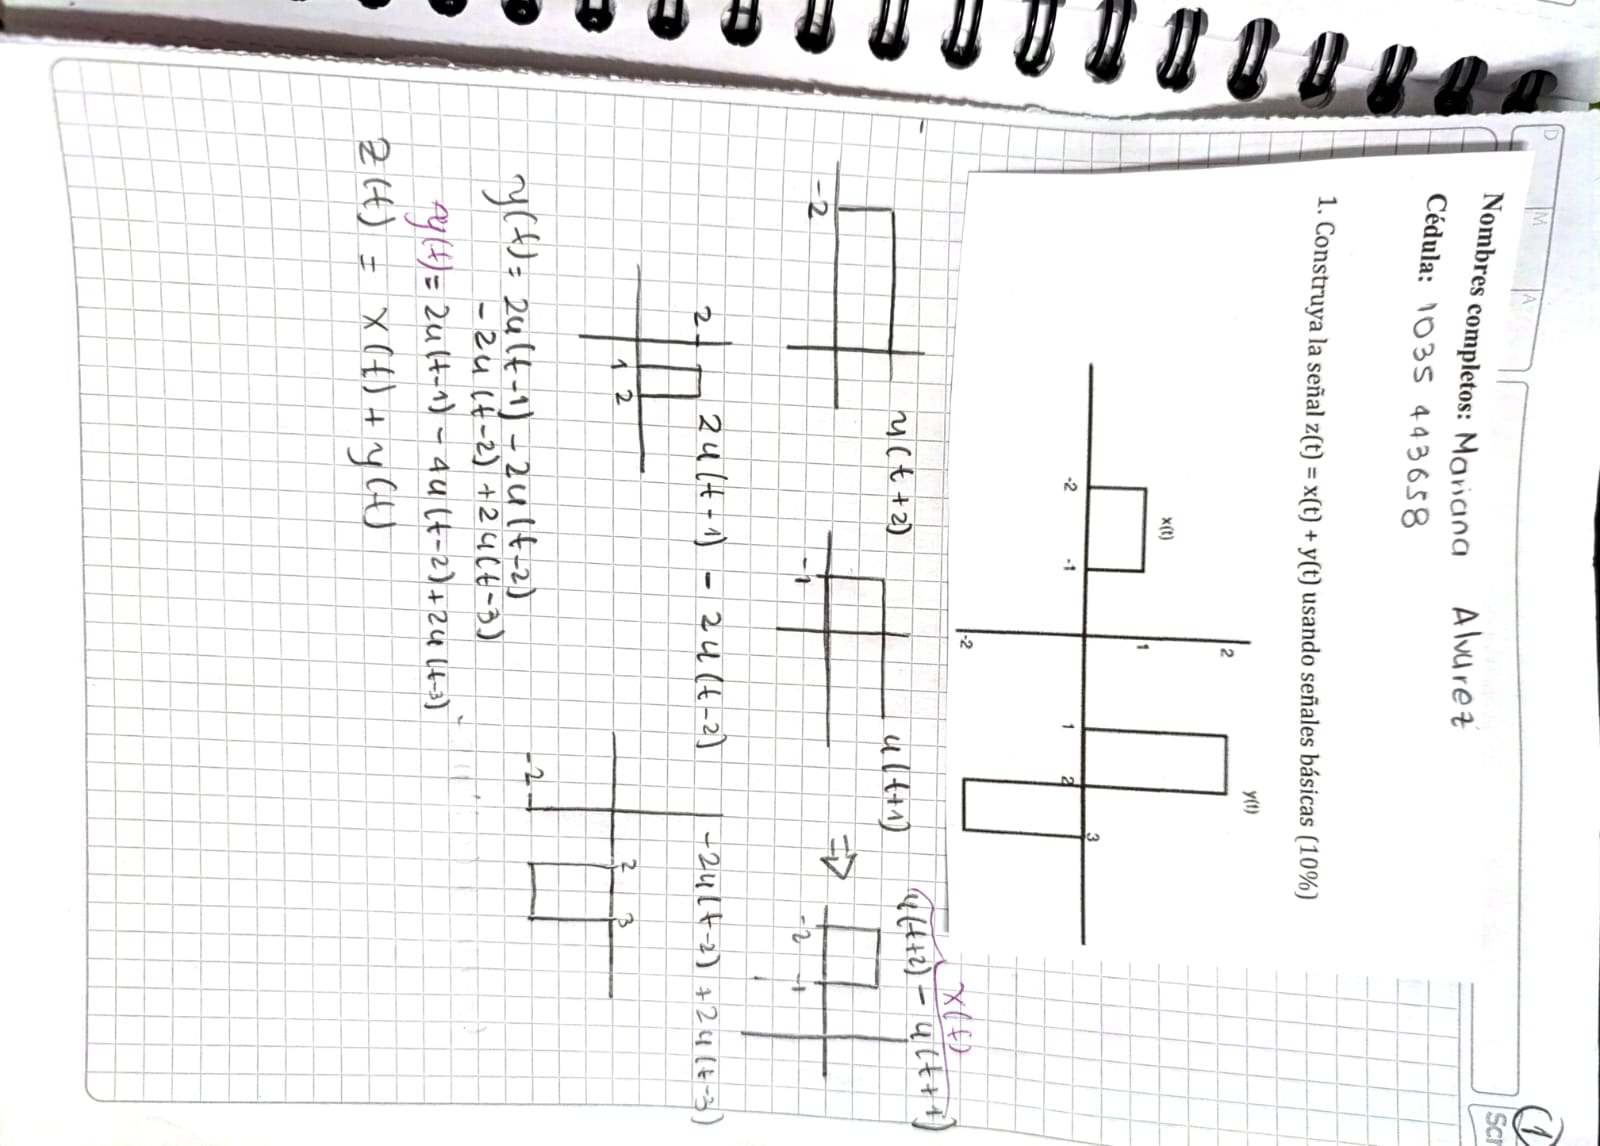 D M A
Scr
1
Nombres completos: Mariana Alvarez
Cédula: 1035 443658
1. Construya la señal z(t) = x(t) + y(t) usando señales básicas (10%)
x(t)
y(t)
2
1
-2 -1 1 2 3
-2
x(t)
u(t+2) u(t+1) ⇒ u(t+2) - u(t+1)
-2 -1 -2 -1
2u(t-1) - 2u(t-2) -2u(t-2) + 2u(t-3)
2
1 2
2 3
-2
y(t) = 2u(t-1) - 2u(t-2)
- 2u(t-2) + 2u(t-3)
y(t) = 2u(t-1) - 4u(t-2) + 2u(t-3)
z(t) = x(t) + y(t)